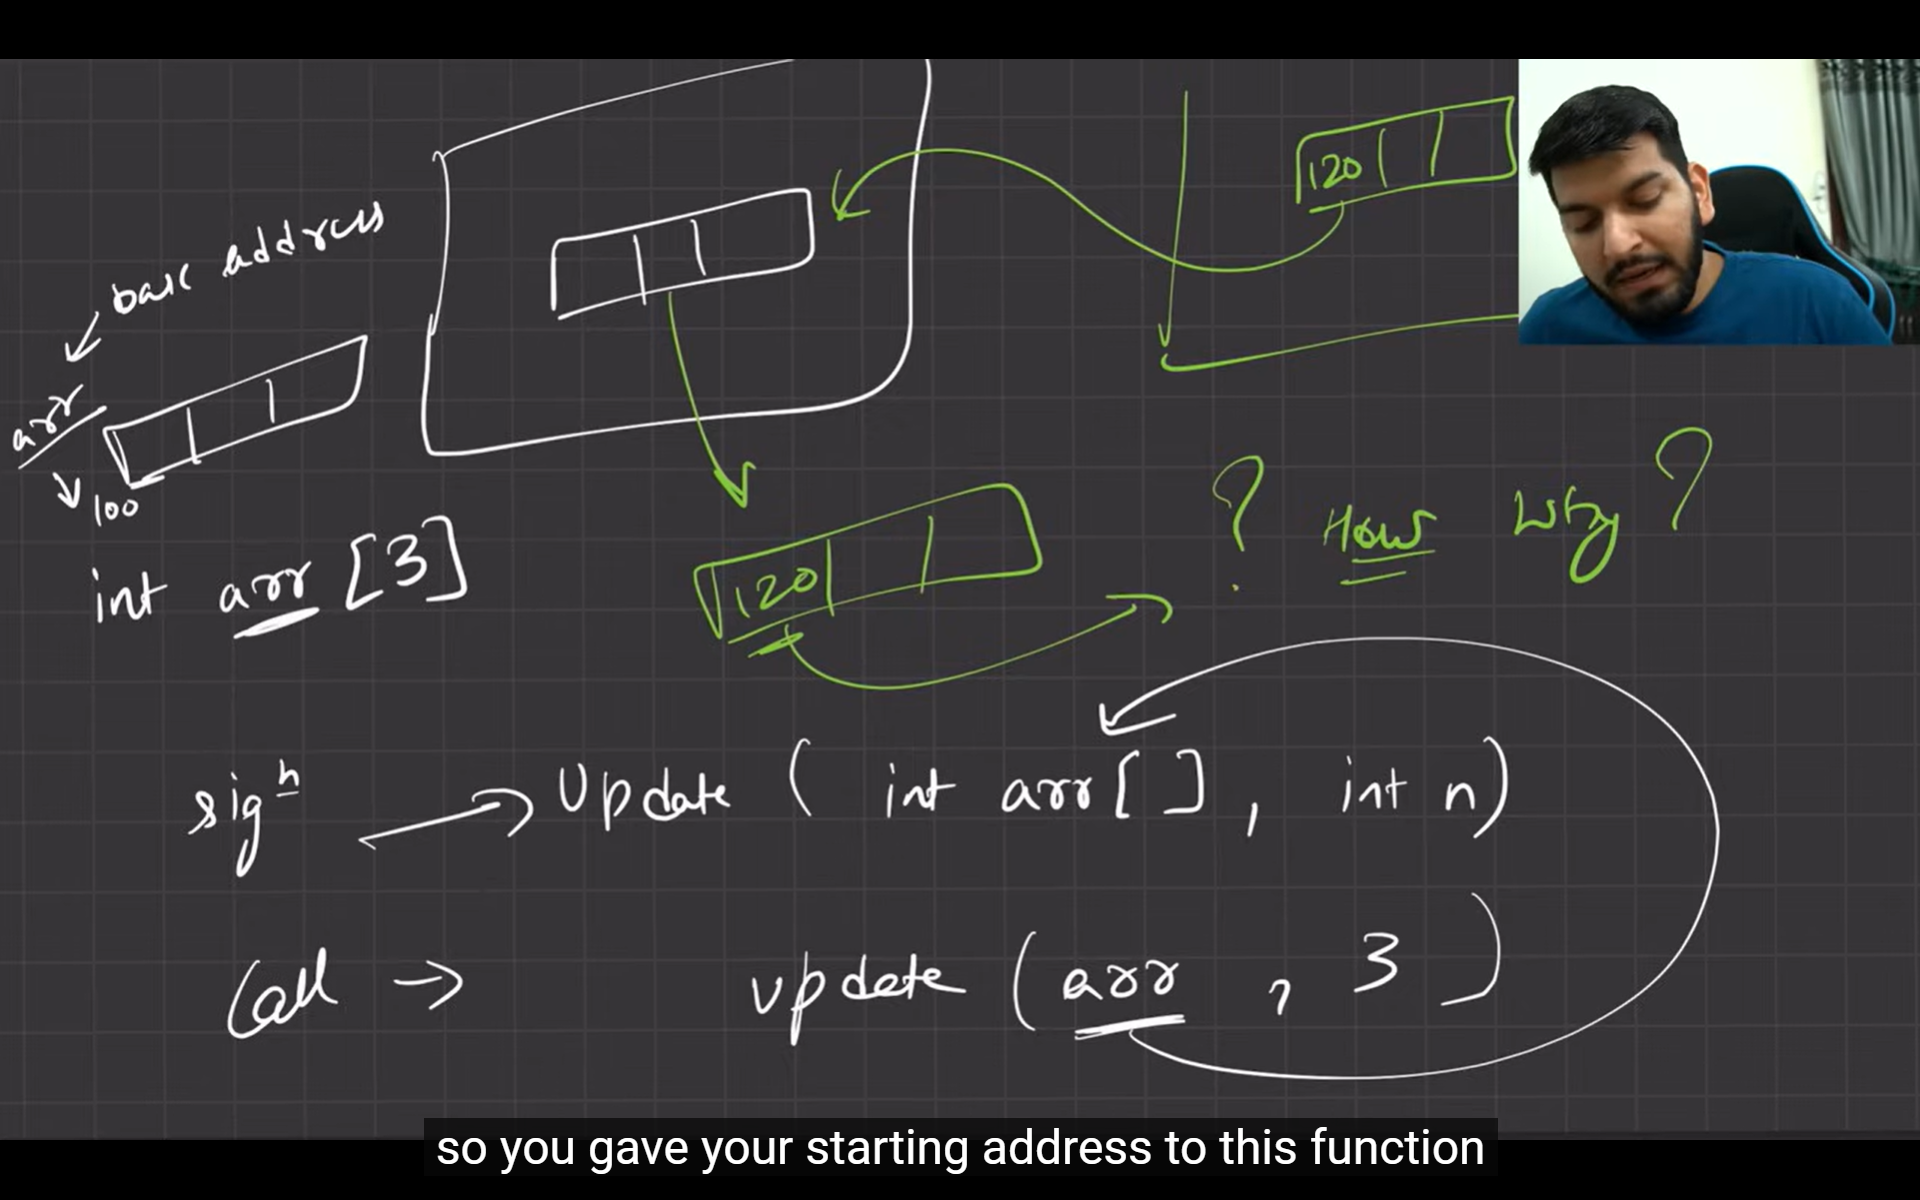 base address
120
arr
100
int arr [3]
120
? How Why ?
sigⁿ → Update ( int arr [ ] , int n )
Call → update ( arr , 3 )
so you gave your starting address to this function